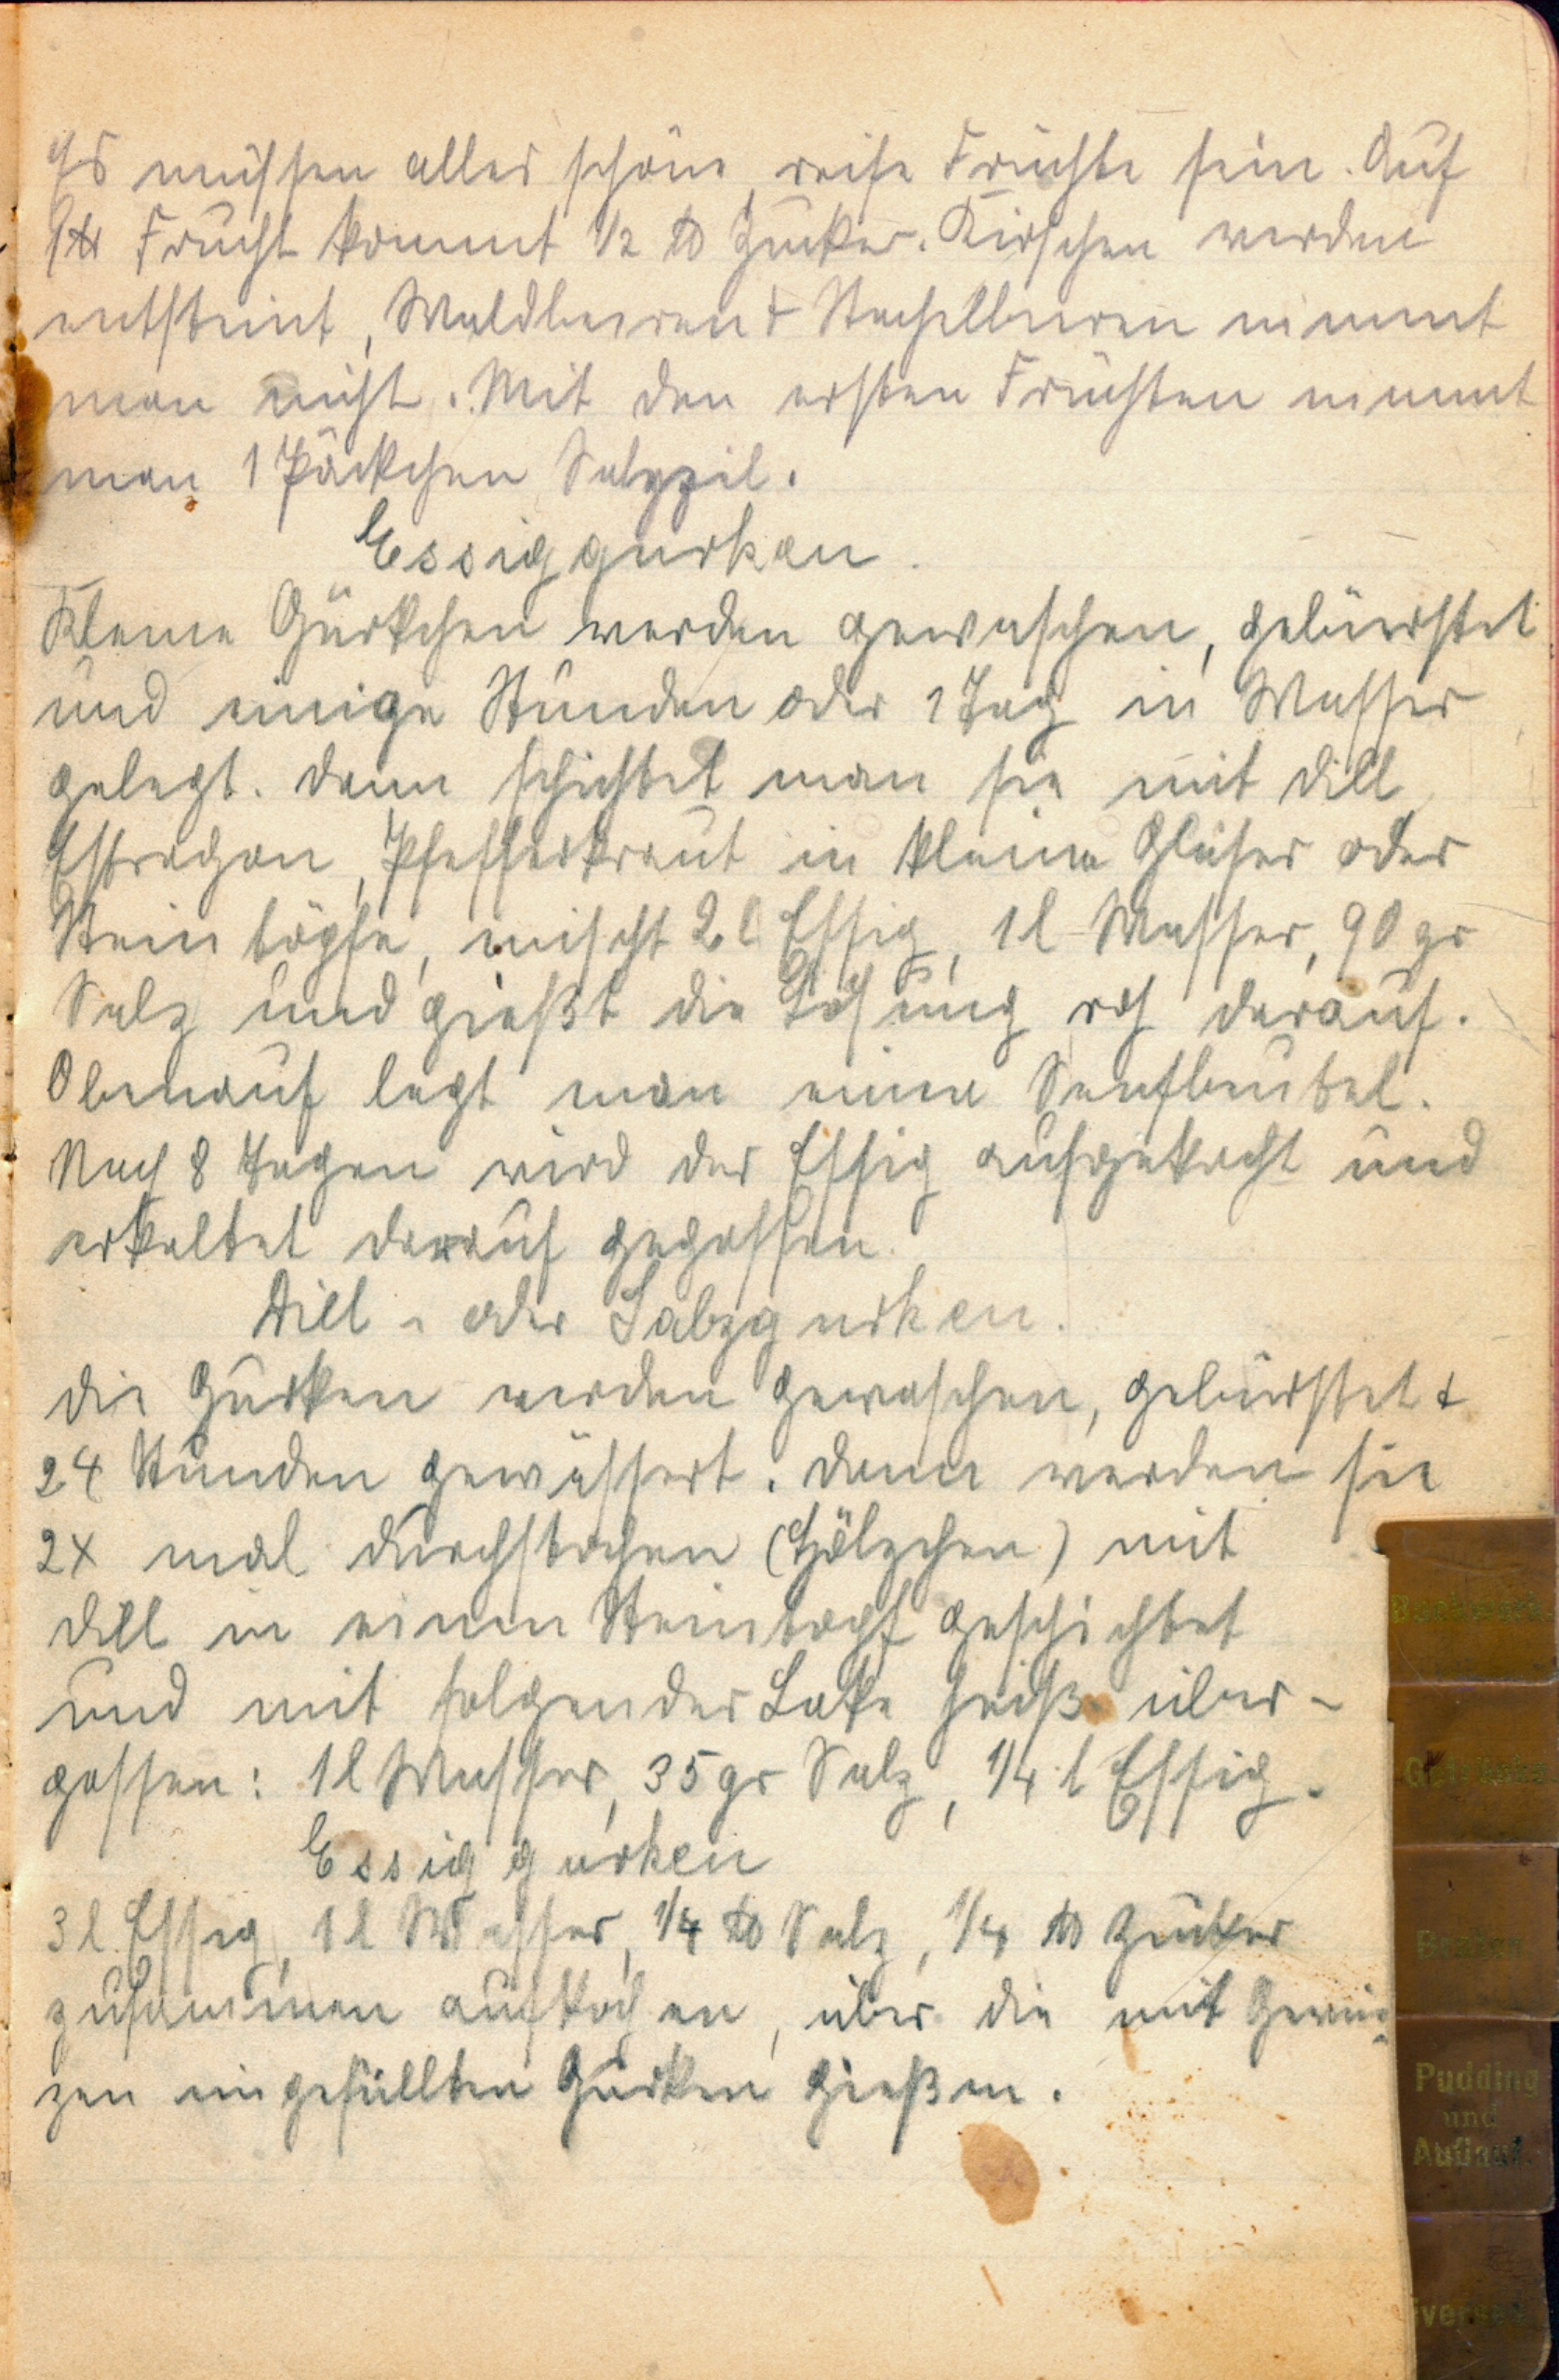 Es müssen alles schöne, reife Früchte sein. Auf
1 ℔ Frucht kommt 1/2 ℔ Zucker. Kirschen werden
entsteint, Waldbeeren + Stachelbeeren nimmt
man nicht. Mit den ersten Früchten nimmt
man 1 Päckchen Salyzil.
Essiggurken.
Kleine Gürkchen werden gewaschen, gebürstet
und einige Stunden oder 1 Tag in Wasser
gelegt. Dann schichtet man sie mit Dill
Estragon, Pfefferkraut in kleine Gläser oder
Steintöpfe, mischt 2 l Essig, 1 l Wasser, 90 gr
Salz und gießt die Lösung roh darauf.
Obenauf legt man einen Senfbeutel.
Nach 8 Tagen wird der Essig aufgekocht und
erkaltet darauf gegossen.
Dill- oder Salzgurken.
Die Gurken werden gewaschen, gebürstet +
24 Stunden gewässert. Dann werden sie
2x mal durchstochen (Hölzchen) mit
Dill in einen Steintopf geschichtet
und mit folgender Lake heiß über-
gossen: 1 l Wasser, 35 gr Salz, 1/4 l Essig.
Essiggurken
3 l Essig, 1 l Wasser, 1/4 ℔ Salz, 1/4 ℔ Zucker
zusammen aufkochen, über die mit Gewür-
zen eingefüllten Gurken gießen.
Backwerk
Getränke
Braten
Pudding
und
Auflauf